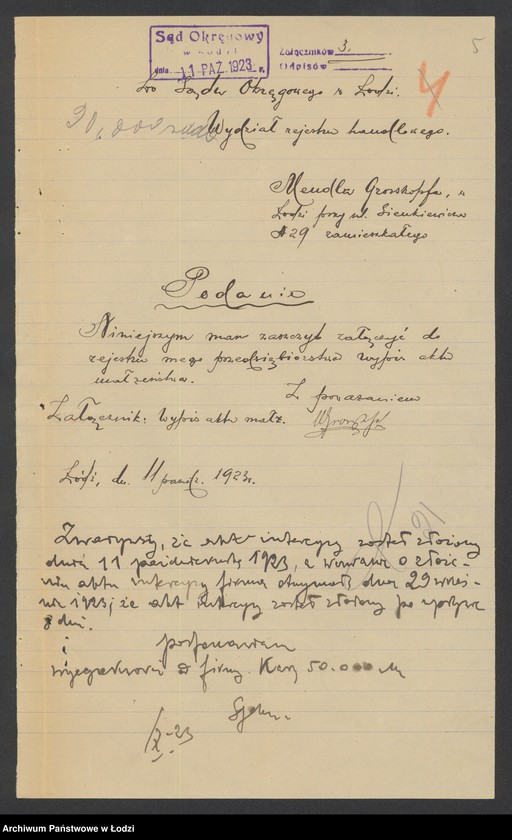 5
Sąd Okręgowy
w Łodzi
dnia 11 PAŹ. 1923 r.
Załączników 3.
Odpisów
4
Do Sądu Okręgowego w Łodzi.
Wydział rejestru handlowego.
Mendla Grosskopfa, w
Łodzi przy ul. Sienkiewicza
№ 29 zamieszkałego
Podanie
Niniejszym mam zaszczyt załączyć do
rejestru mego przedsiębiorstwa wypis aktu
małżeństwa.
Z poważaniem
Załącznik: Wypis aktu małż.
Łódź, dn. 11 paźdz. 1923 r.
Zważywszy, że akt intercyzy został złożony
dnia 11 października 1923, a wezwanie o złoże-
niu aktu intercyzy firma otrzymała dnia 29 wrześ-
nia 1923, że akt intercyzy został złożony po upływie
8 dni.
postanawiam
wyegzekwować z firmy karę 50.000 M
X-23